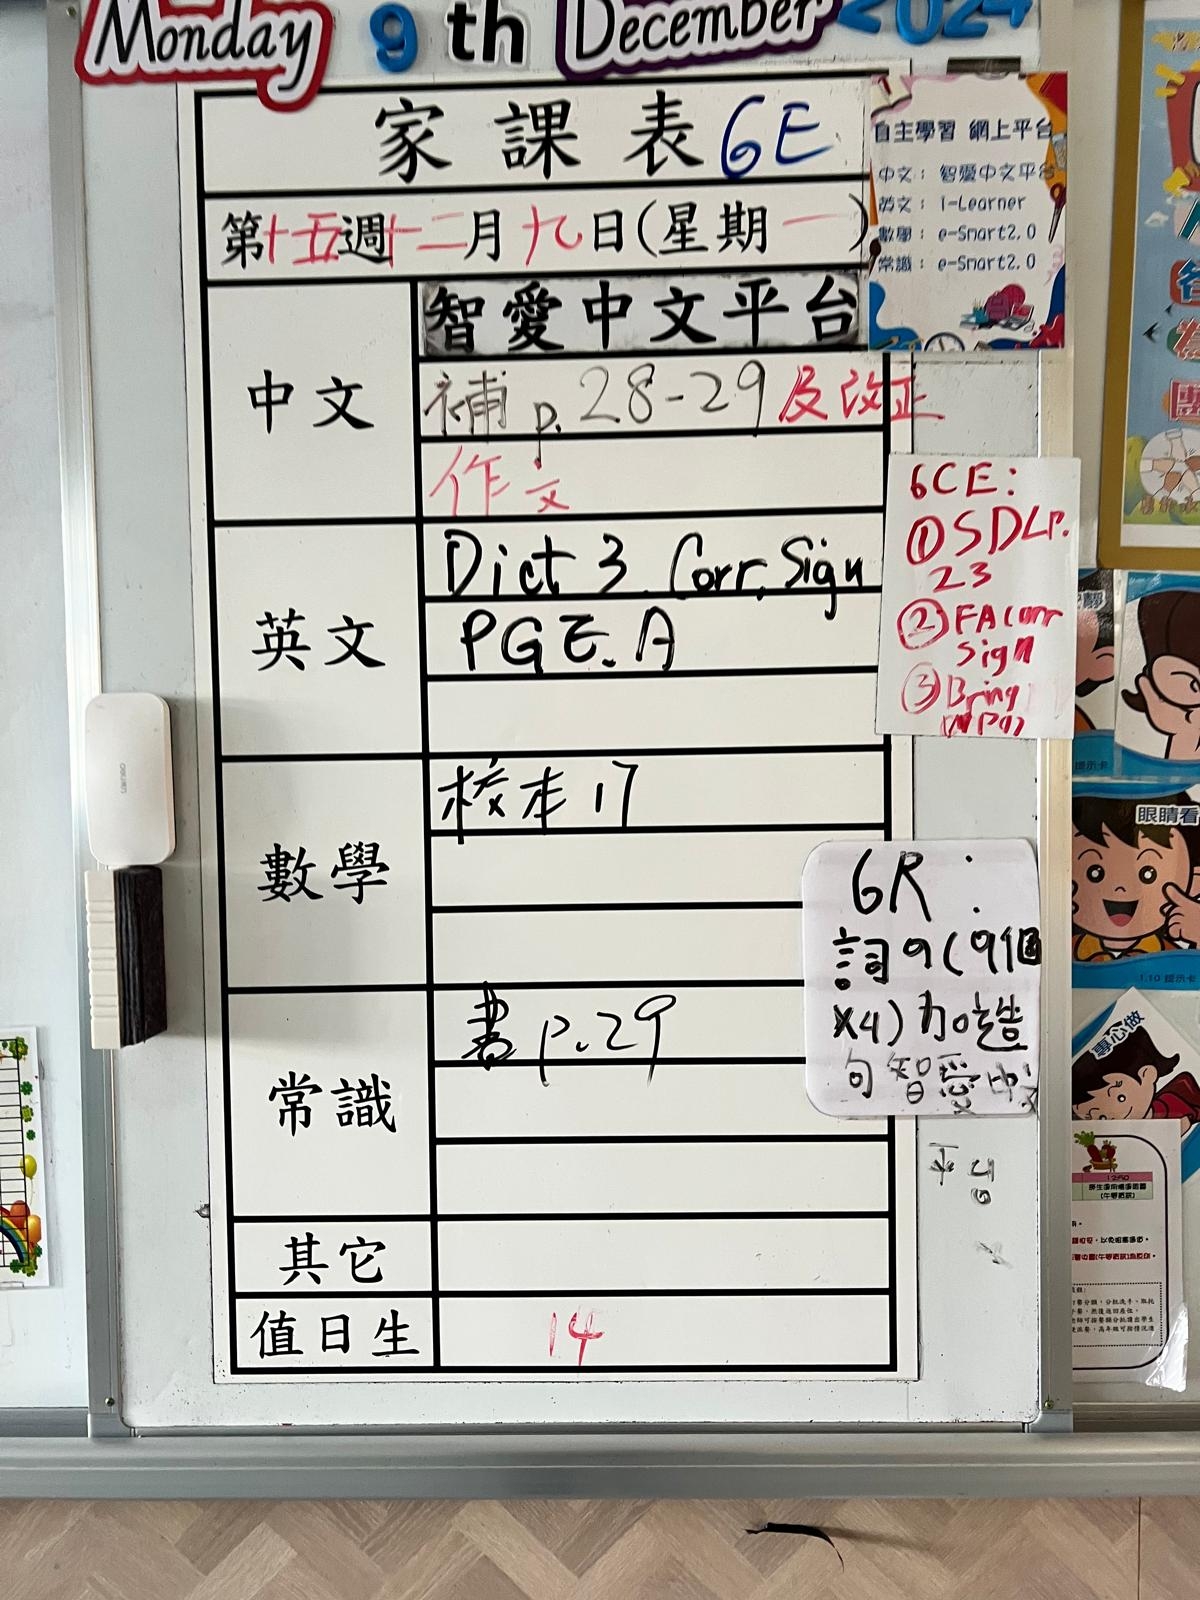 Monday 9 th December 2024
家課表 6E
第十五週十二月九日(星期一)
自主學習 網上平台
中文： 智愛中文平台
英文： i-Learner
數學： e-Smart2.0
常識： e-Smart2.0
中文
智愛中文平台
補 p. 28-29 及改正
作文
英文
Dict 3 Corr. Sign
PGE. A
數學
校本 17
常識
書 p. 29
其它
值日生
14
6CE:
① SDLP.
23
② FA Corr
Sign
③ Bring
6R :
詞9(9個
x4)加造
句智愛中文
平台
眼睛看
1.10 提示卡
專心做